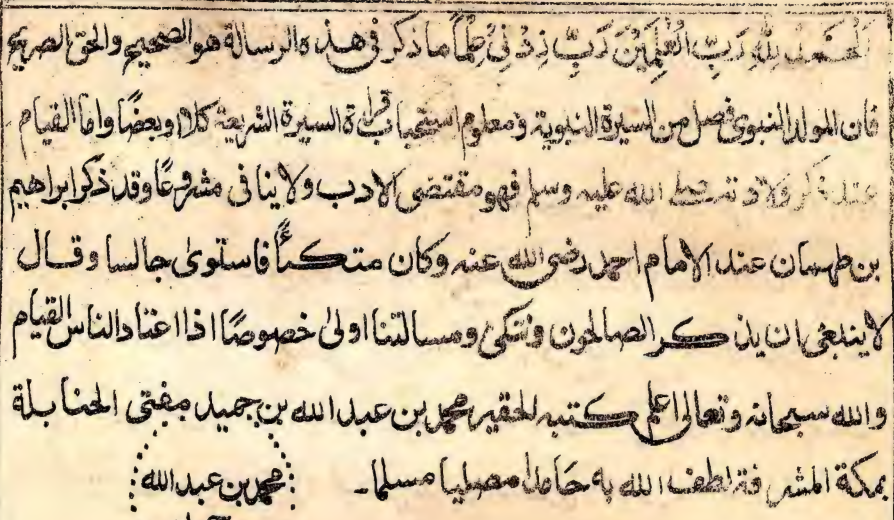 اَلْحَمْدُ لِلّٰهِ رَبِّ الْعٰلَمِيْنَ رَبِّ زِدْنِيْ عِلْمًا ما ذكر فى هذه الرسالة هو الصحيح والحق الصريح
فان المولد النبوى فصل من السيرة النبوية ومعلوم استحباب قراءة السيرة الشريعة كلا او بعضًا واما القيام
عند ذكر ولادته صلى الله عليه وسلم فهو مقتضى الادب ولا ينافى مشروعًا وقد ذكر ابراهيم
بن طهمان عند الامام احمد رضى الله عنه وكان متكئًا فاستوىٰ جالسا وقال
لا ينبغى ان يذكر الصالحون ونتكى ومسالتنا اولىٰ خصوصًا اذا اعتاد الناس القيام
والله سبحانه وتعالى اعلم كتبه الحقير محمد بن عبد الله بن حميد مفتى الحنابلة
بمكة المشرفة لطف الله به حامدا مصليا مسلما۔
محمد بن عبد الله